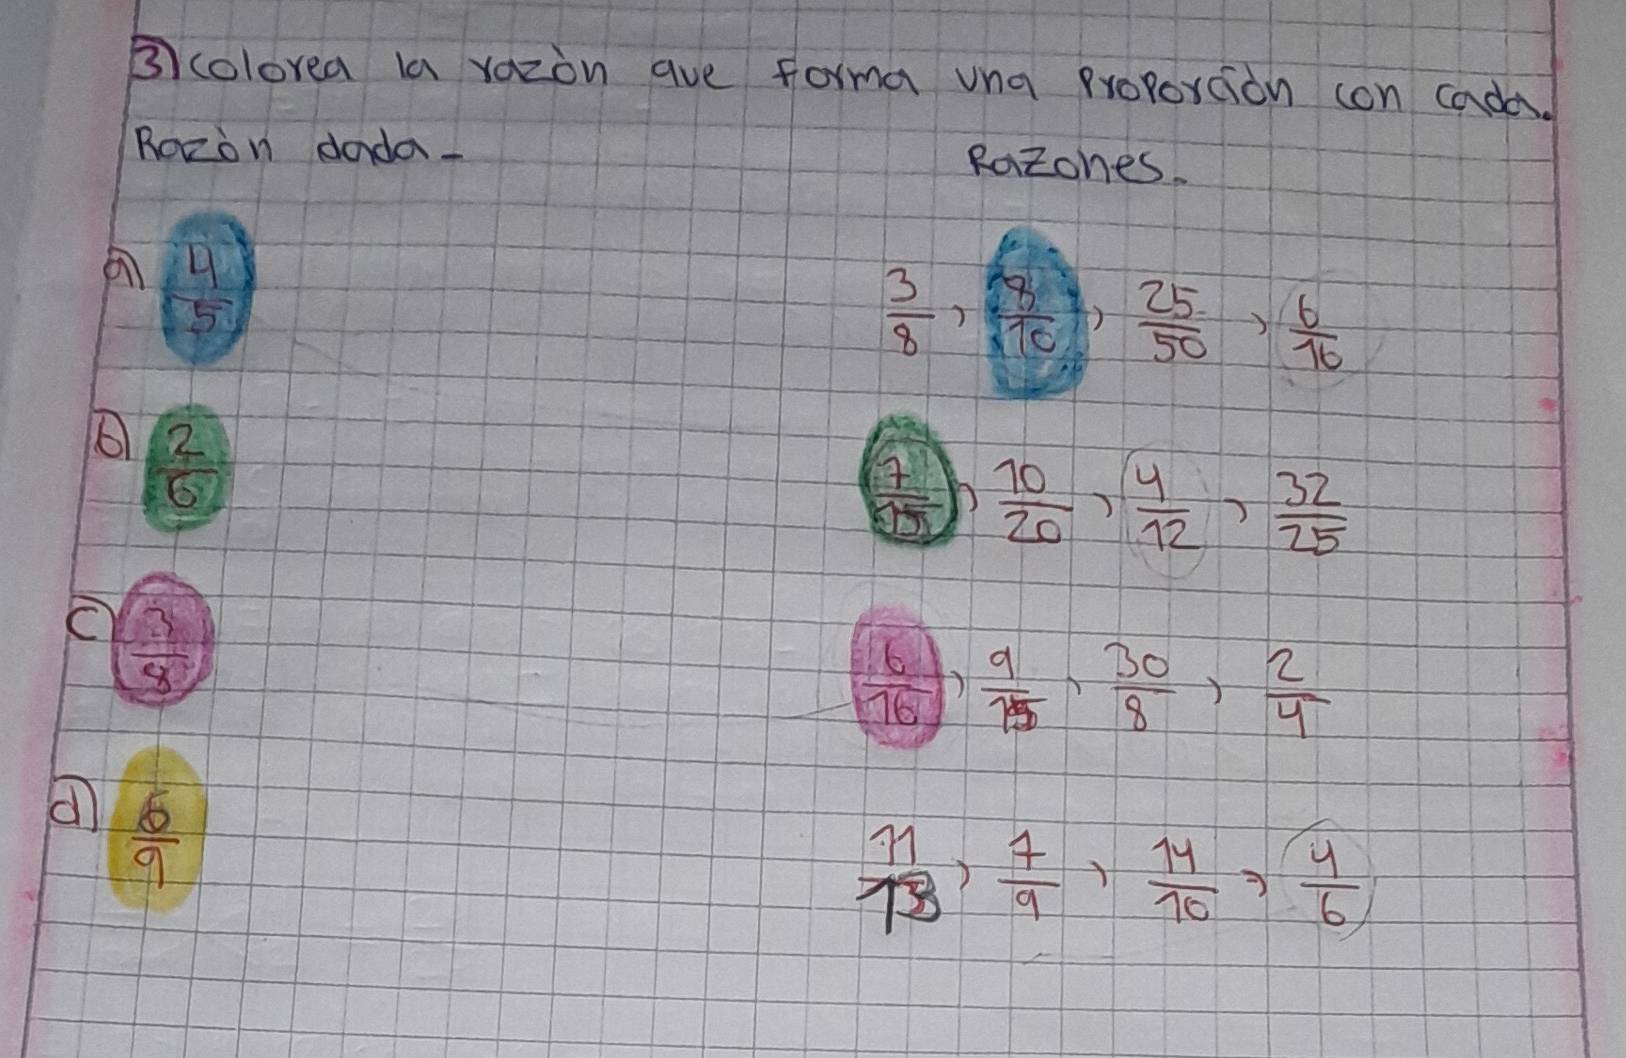 3) Colorea la razòn que forma una proporción con cada.
Razòn dada- Razones.
a) 4/5 3/8, 8/10, 25/50, 6/16
b) 2/6 7/15, 10/20, 4/12, 32/25
c) 3/8 6/16, 9/15, 30/8, 2/4
d) 6/9 11/13, 7/9, 14/10, 4/6